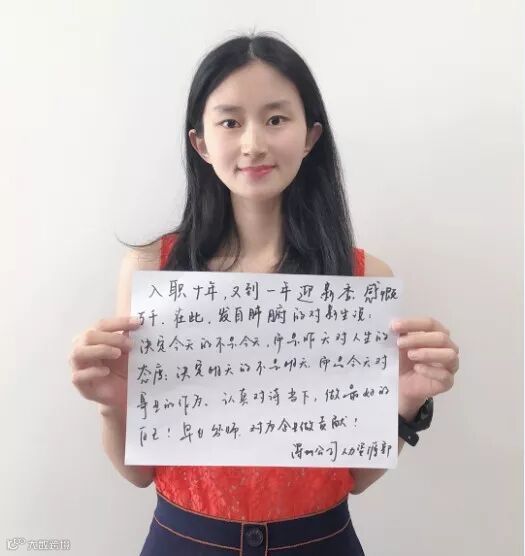 入职十年，又到一年迎新季，感慨
万千，在此，发自肺腑的对新生说：
决定今天的不是今天，而是昨天对人生的
态度；决定明天的不是明天，而是今天对
事业的作为。认真对待当下，做最好的
自己！早日  师，对为企业做贡献！
公司人力资源部
大成云招